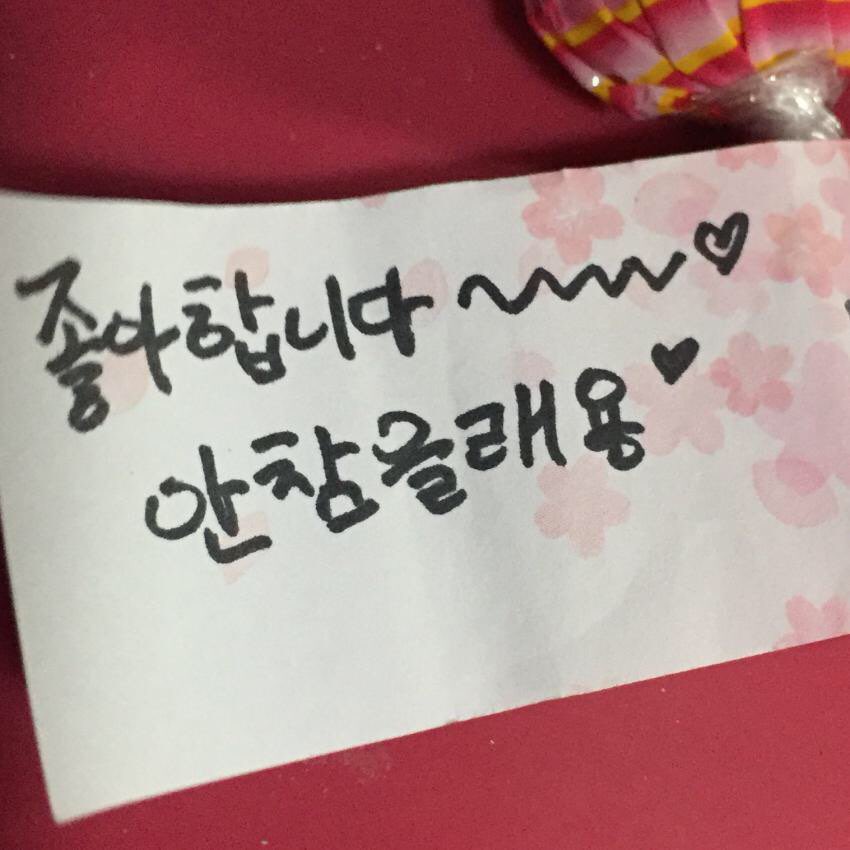 좋아합니다~♡
안참을래용♥